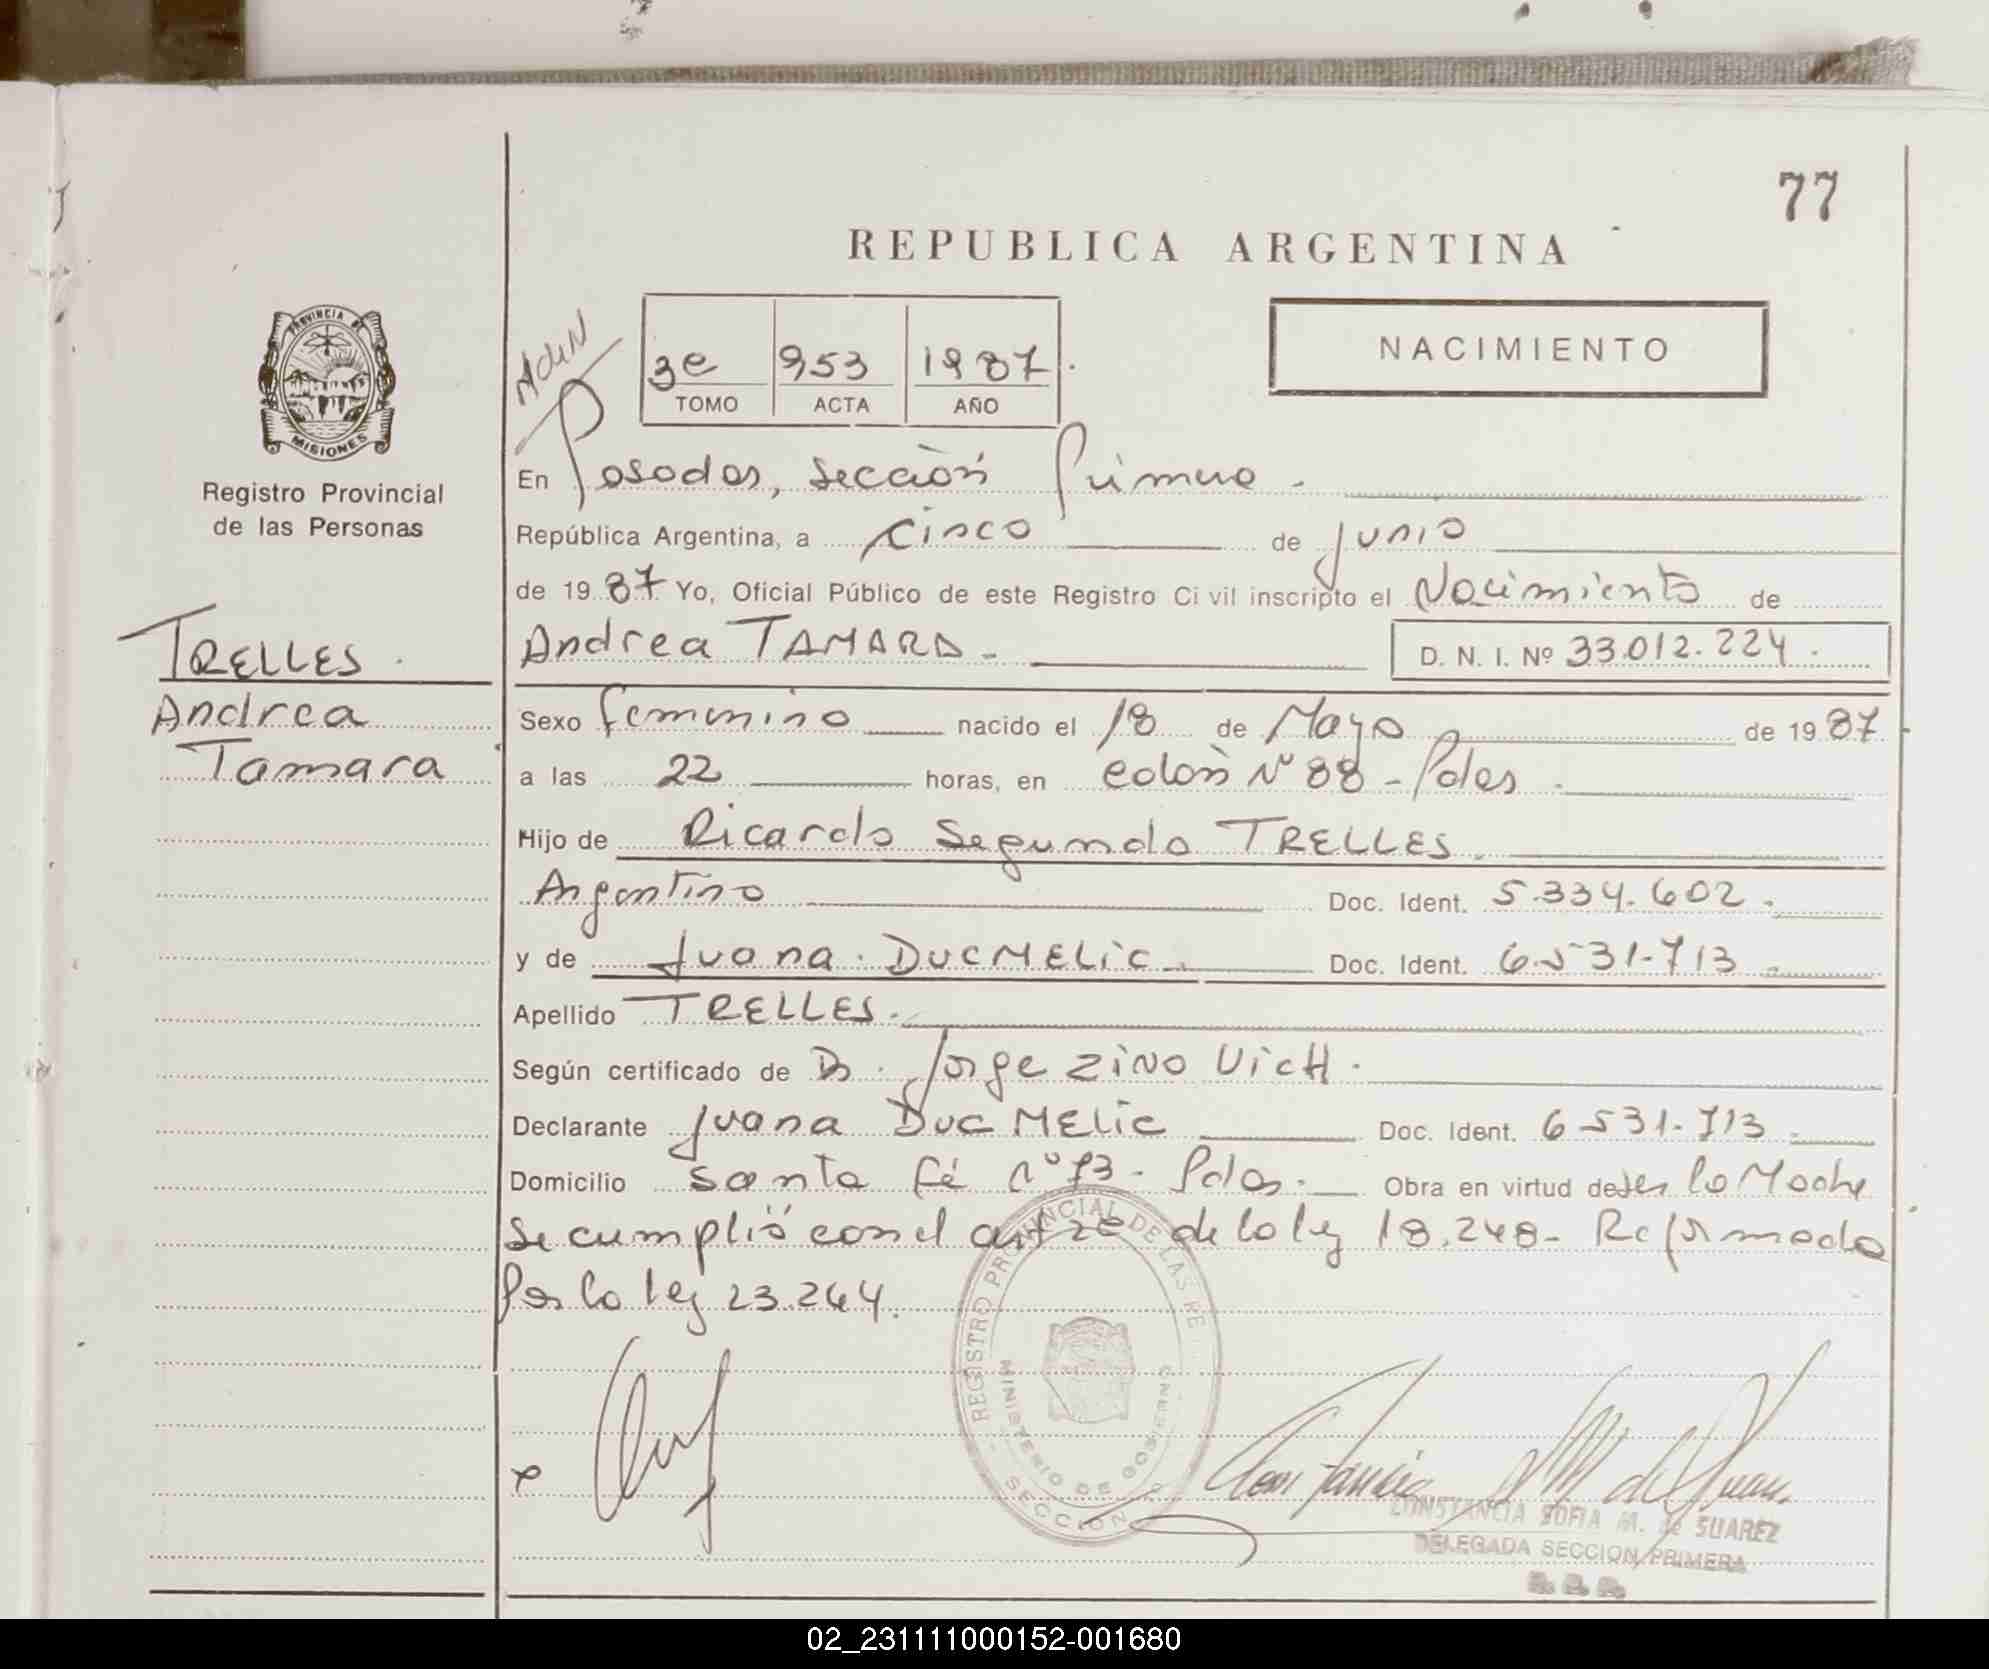 77
REPUBLICA ARGENTINA
NACIMIENTO
3e 953 1987.
TOMO ACTA AÑO
PROVINCIA DE MISIONES
Registro Provincial
de las Personas
TRELLES.
Andrea
Tamara
En Posadas, Sección Primera.
República Argentina, a cinco de junio
de 1987 Yo, Oficial Público de este Registro Civil inscripto el Nacimiento de
Andrea TAMARA. D. N. I. Nº 33.012.224.
Sexo femenino nacido el 18 de Mayo de 1987
a las 22 horas, en Colón Nº 88 - Pdas.
Hijo de Ricardo Segundo TRELLES.
Argentino Doc. Ident. 5.334.602.
y de Juana. DUCMELIC. Doc. Ident. 6.531.713.
Apellido TRELLES.
Según certificado de Dr. Jorge ZINO VICH.
Declarante Juana DUCMELIC Doc. Ident. 6531.713.
Domicilio Santa Fé Nº 73 - Pdas. Obra en virtud de ser la Madre
Se cumplió con el art 2º de la ley 18.248 - Reformada
Por la ley 23.264.
REGISTRO PROVINCIAL DE LAS
MINISTERIO DE GOBIERNO
SECCION
CONSTANCIA SOFIA M. de SUAREZ
DELEGADA SECCION PRIMERA
02_231111000152-001680